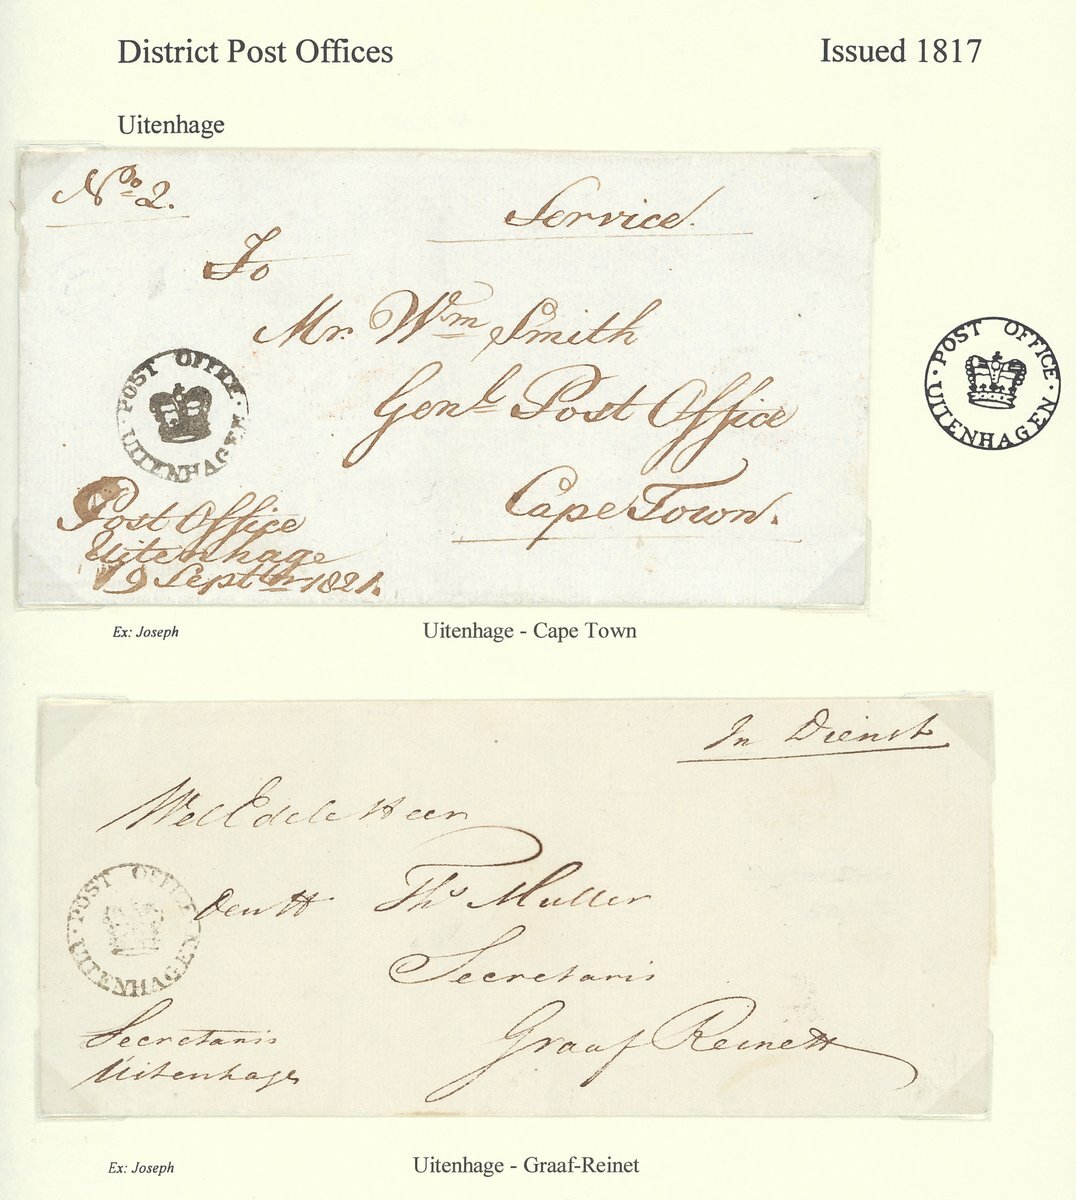 District Post Offices
Issued 1817
Uitenhage
No 2.
Service.
To
Mr. Wm Smith
Genl Post Office
Cape Town.
POST OFFICE
UITENHAGEN
Post Office
Uitenhage
19 Septbr 1821.
POST OFFICE
UITENHAGEN
Ex: Joseph
Uitenhage - Cape Town
In Dienst
Wel Edele Heer
den H Ths Muller
Secretaris
Graaf Reinett
POST OFFICE
UITENHAGEN
Secretaris
Uitenhage
Ex: Joseph
Uitenhage - Graaf-Reinet